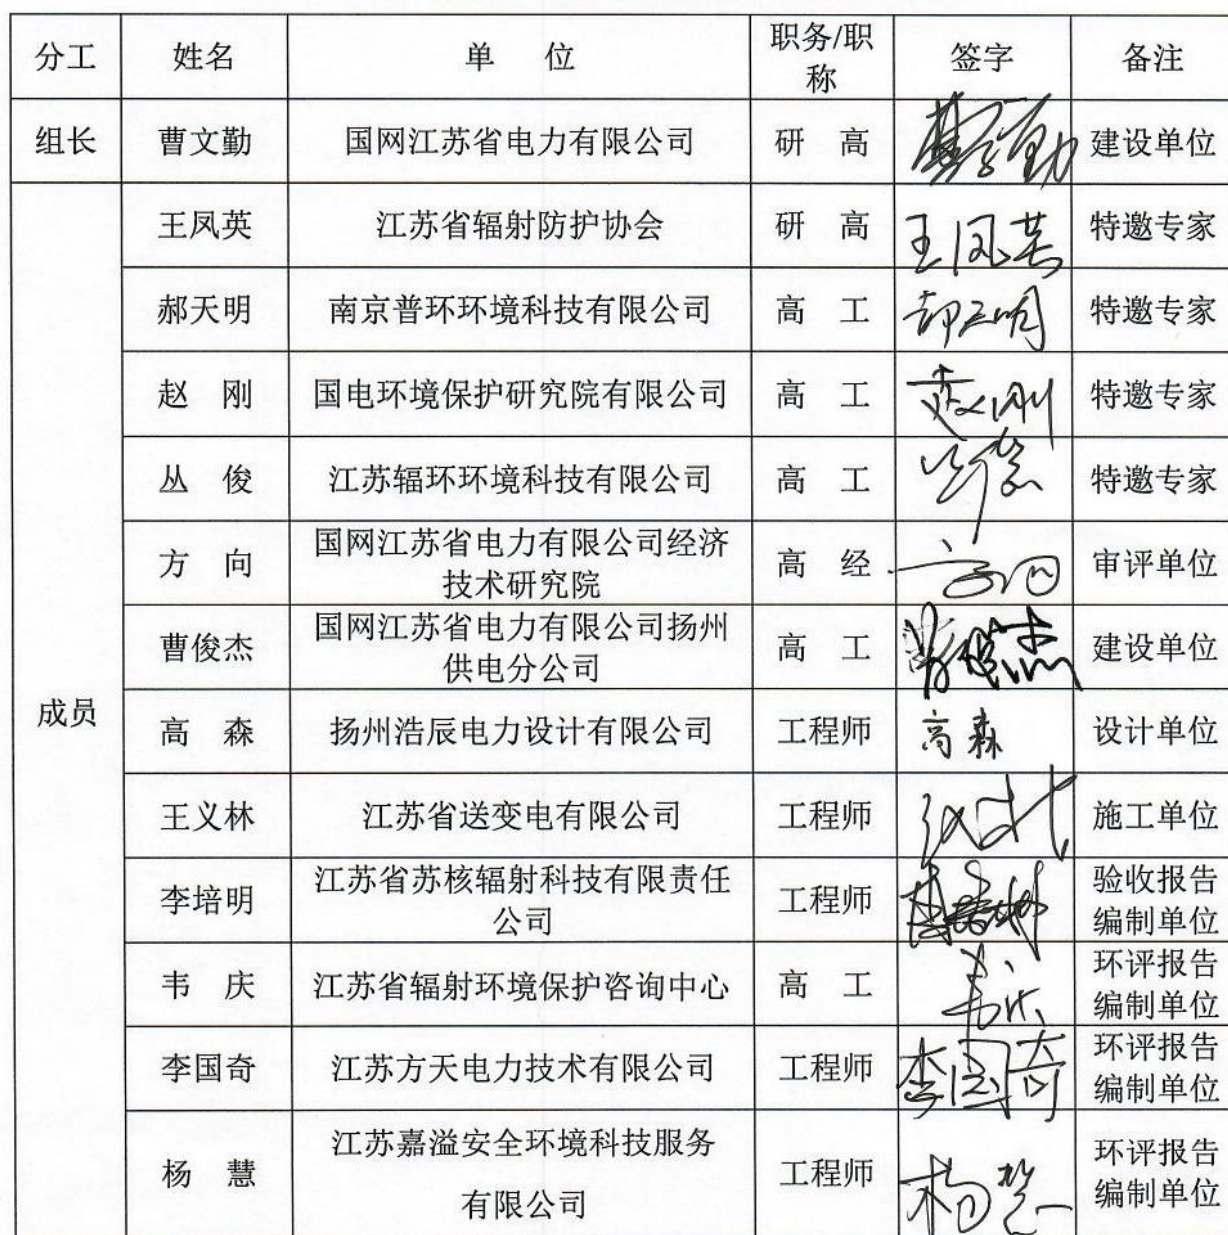 分工 姓名 单 位 职务/职称 签字 备注
组长 曹文勤 国网江苏省电力有限公司 研 高 建设单位
成员
王凤英 江苏省辐射防护协会 研 高 王凤英 特邀专家
郝天明 南京普环环境科技有限公司 高 工 郝天明 特邀专家
赵 刚 国电环境保护研究院有限公司 高 工 赵刚 特邀专家
丛 俊 江苏辐环环境科技有限公司 高 工 特邀专家
方 向 国网江苏省电力有限公司经济
技术研究院 高 经 方向 审评单位
曹俊杰 国网江苏省电力有限公司扬州
供电分公司 高 工 曹俊杰 建设单位
高 森 扬州浩辰电力设计有限公司 工程师 高森 设计单位
王义林 江苏省送变电有限公司 工程师 施工单位
李培明 江苏省苏核辐射科技有限责任
公司 工程师 验收报告
编制单位
韦 庆 江苏省辐射环境保护咨询中心 高 工 韦庆 环评报告
编制单位
李国奇 江苏方天电力技术有限公司 工程师 李国奇 环评报告
编制单位
杨 慧 江苏嘉溢安全环境科技服务
有限公司 工程师 杨慧 环评报告
编制单位